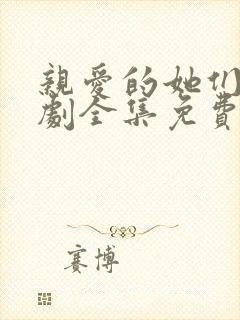 親愛的她们
劇全集免費
赛博